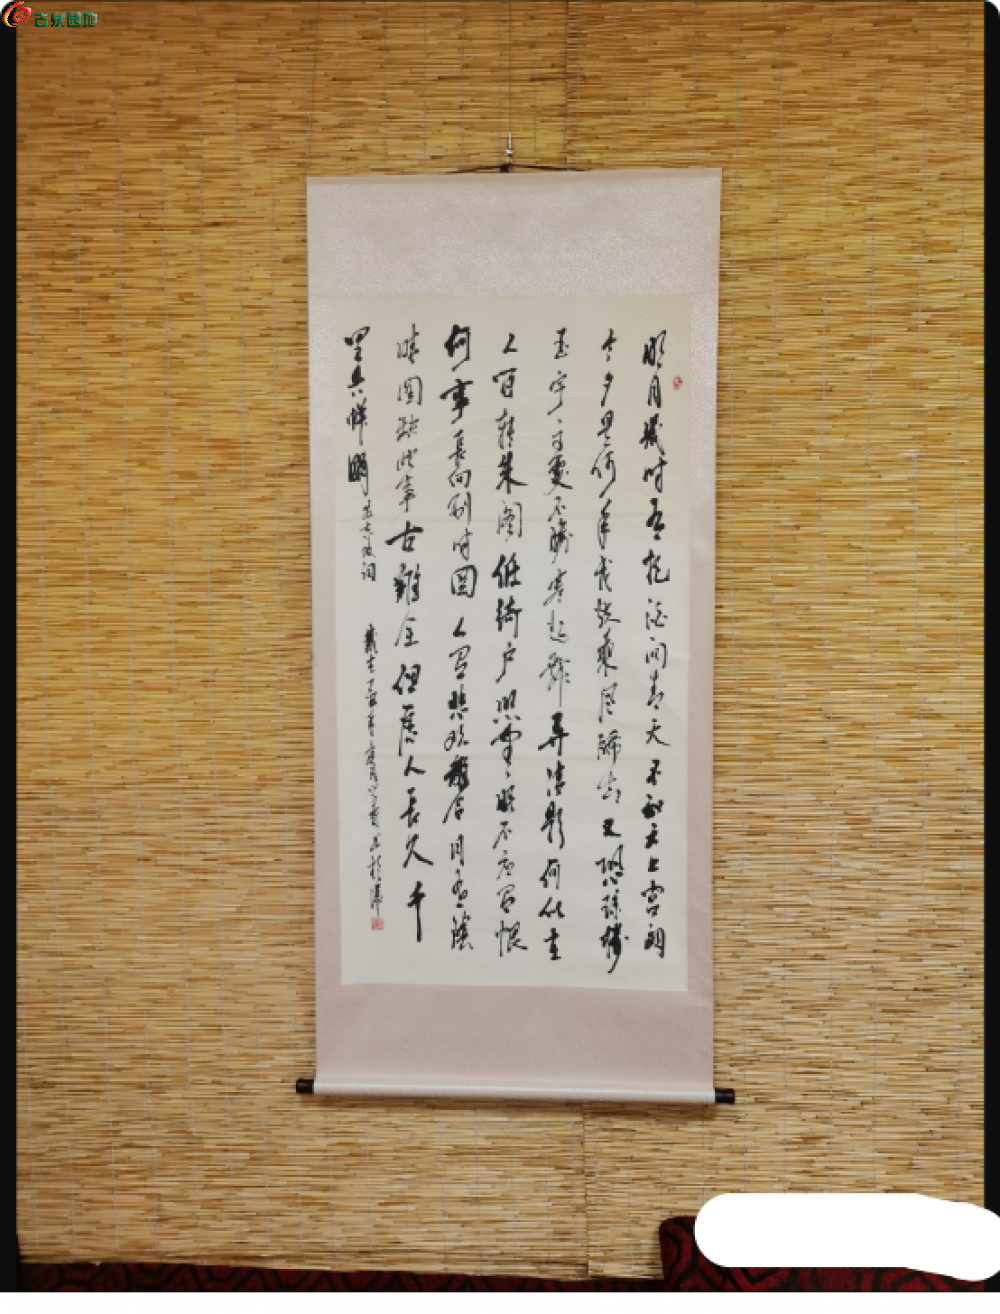 古泉园地
明月幾时有把酒问青天不知天上宫阙
今夕是何年我欲乘風歸去又恐瓊樓
玉宇高處不勝寒起舞弄清影何似在
人间转朱阁低绮户照無眠不应有恨
何事長向别时圆人有悲欢離合月有陰
晴圆缺此事古難全但愿人長久千
里共嬋娟 苏东坡词